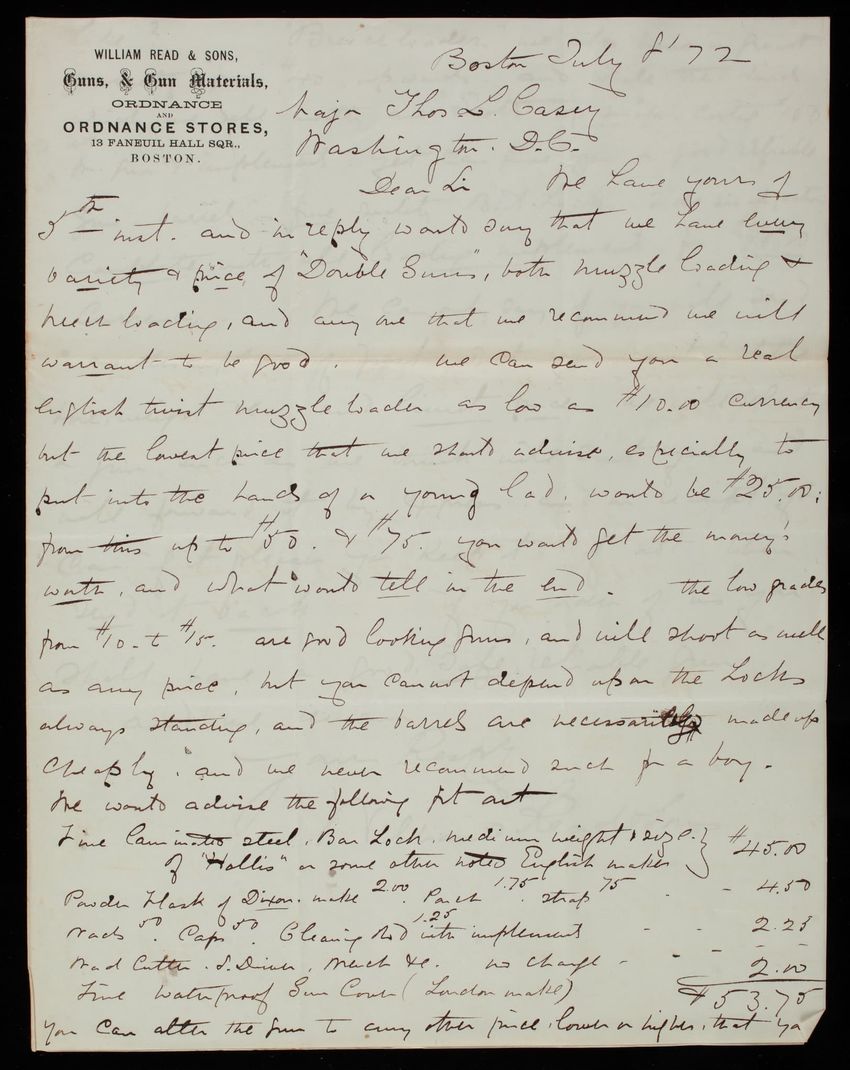 WILLIAM READ & SONS,
Guns, & Gun Materials,
ORDNANCE
AND
ORDNANCE STORES,
13 FANEUIL HALL SQR.,
BOSTON.
Boston July 8' 72
Major Thos L. Casey
Washington. D.C.
Dear Sir We have yours of
5th inst. and in reply would say that we have every
variety & price of "Double Guns", both muzzle loading &
breech loading, and any one that we recommend we will
warrant to be good. we can send you a real
English twist muzzle loader as low as $10.00 currency
but the lowest price that we should advise, especially to
put into the hands of a young lad, would be $25.00;
from this up to $50. & $75. you would get the money's
worth, and what would tell in the end. the low grades
from $10. to $15. are good looking guns, and will shoot as well
as any price, but you cannot depend upon the Locks
always standing, and the barrels are necessarily made up
cheaply. and we never recommend such for a boy.
We would advise the following fit out
Fine laminated steel, Bar Lock, medium weight & size.
of "Hollis" or some other noted English maker } $45.00
Powder Flask of Dixon. make 2.00. Pouch 1.75. strap 75 - - 4.50
Wads 50. Caps 50. Cleaning Rod with implements 1.25 - - 2.25
Wad Cutter. S. Driver, &c. no charge - - -
Fine waterproof Gun Cover (London make) 2.00
$53.75
You can alter the gun to any other price, lower or higher, that you